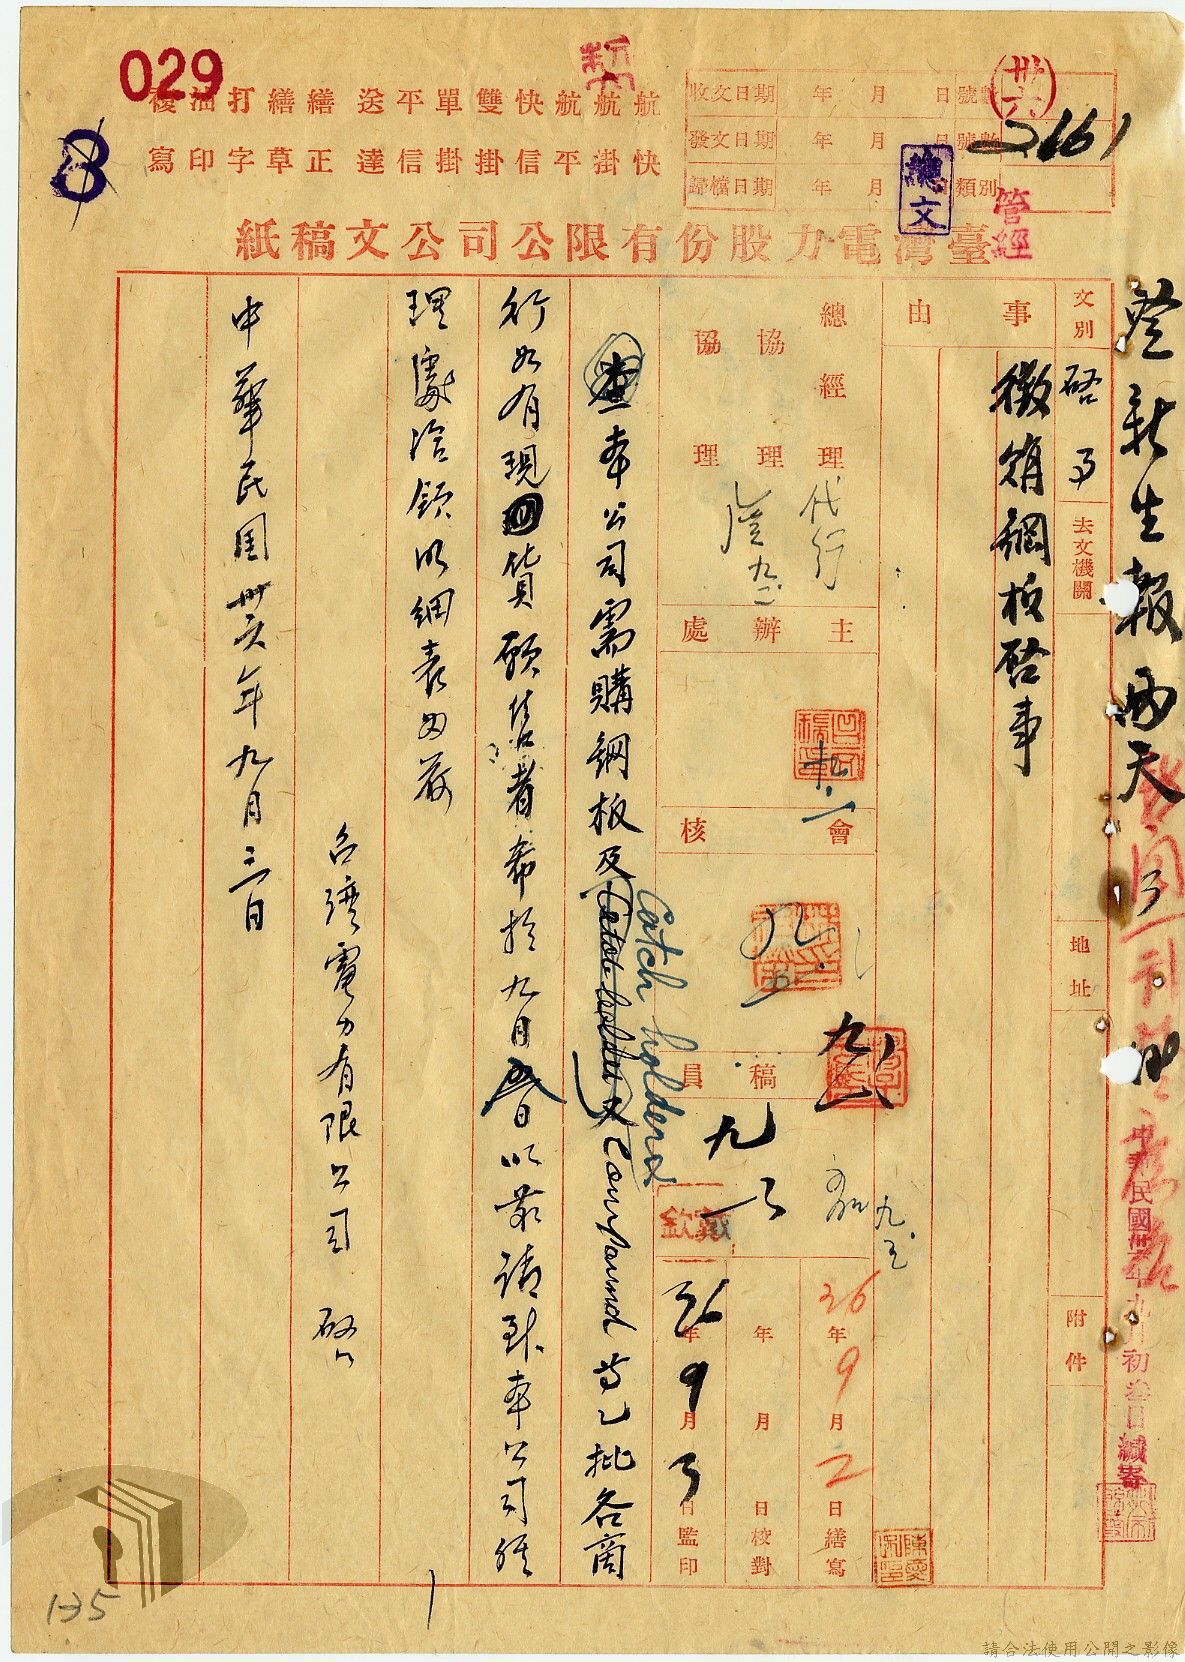 029
8
航 航 航 快 雙 單 平 送 繕 繕 打 油 複
快 掛 平 信 掛 掛 信 達 正 草 字 印 寫
收文日期 年 月 日 號數
發文日期 年 月 日 號數
歸檔日期 年 月 日 類別
(卅六)
2661
總文
管經
臺灣電力股份有限公司公文稿紙
登新生報兩天
文別 啓事
去文機關
地址
附件
事由
徵購鋼板啓事
總經理 代行
協理
協理
主辦處
會核
稿員
戴欽
36年9月2日繕寫
年 月 日校對
36年9月3日監印
中華民國卅六年九月初叁日緘寄
查本公司需購鋼板及Catch holders Compound等乙批各商
行如有現貨願售者希於九月 日以前請到本公司經
理處洽領明細表為荷
台灣電力有限公司 啓
中華民國卅六年九月三日
135
請合法使用公開之影像